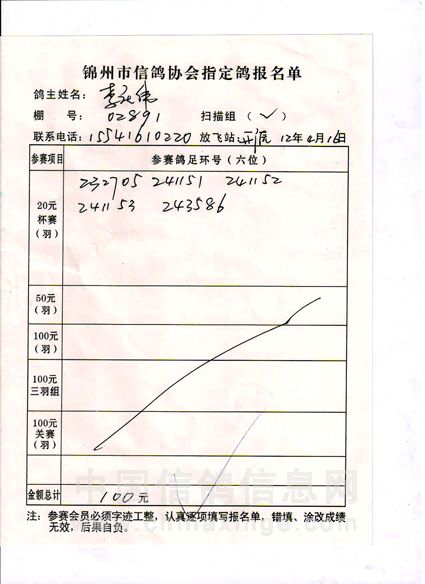 锦州市信鸽协会指定鸽报名单
鸽主姓名：李
棚 号：02891 扫描组（✓）
联系电话：15541610220 放飞站： 12年4月16日
参赛项目 参赛鸽足环号（六位）
20元杯赛（羽） 232705 241151 241152
241153 243586
50元（羽）
100元（羽）
100元三羽组
100元关赛（羽）
金额总计 100元
注：参赛会员必须字迹工整，认真逐项填写报名单，错填、涂改成绩
无效，后果自负。
中国信鸽信息网
www.chinaxinge.com